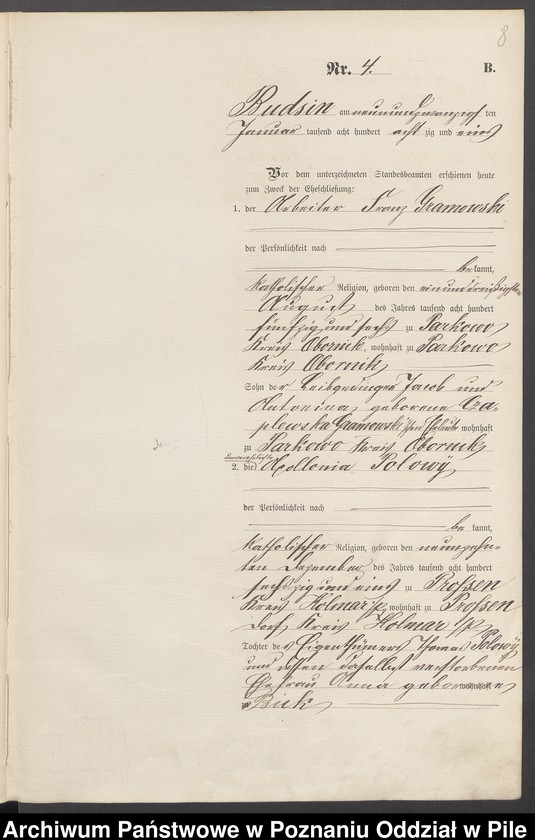 8
Nr. 4. B.
Budsin am neunundzwanzigsten
Januar tausend acht hundert achtzig und eins
Vor dem unterzeichneten Standesbeamten erschienen heute
zum Zweck der Eheschließung:
1. der Arbeiter Franz Gramowski
der Persönlichkeit nach
bekannt,
katholischer Religion, geboren den einunddreißigsten
August des Jahres tausend acht hundert
fünfzig und sechs zu Parkowo
Kreis Obornik, wohnhaft zu Parkowo
Kreis Obornik
Sohn der Leibgedinger Jacob und
Antonina, geborene Cza-
plewska Gramowski'schen Eheleute wohnhaft
zu Parkowo Kreis Obornik
unverehelichte
2. die Apollonia Polowÿ
der Persönlichkeit nach
bekannt,
katholischer Religion, geboren den neunzehn-
ten Dezember des Jahres tausend acht hundert
sechszig und eins zu Prossen
Kreis Kolmar i/P, wohnhaft zu Prossen
dorf, Kreis Kolmar i/P
Tochter des Eigenthümers Thomas Polowÿ
und dessen daselbst verstorbenen
Ehefrau Anna geborene wohnhaft
zu Bick
Archiwum Państwowe w Poznaniu Oddział w Pile